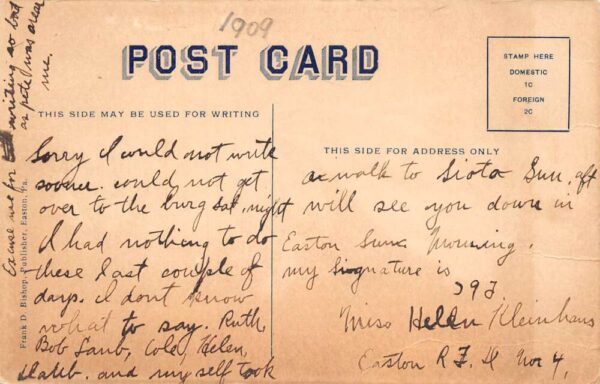 1909
POST CARD
STAMP HERE
DOMESTIC
1C
FOREIGN
2C
THIS SIDE MAY BE USED FOR WRITING
THIS SIDE FOR ADDRESS ONLY
Excuse me for writing so bad
as pete was near
me.
Frank D. Bishop, Publisher, Easton, Pa.
Sorry I could not write
sooner. could not get
over to the burg Sat. night
I had nothing to do
these last couple of
days. I dont know
what to say. Ruth,
Bob Laub, Cole, Helen,
and my self took
a walk to Sun. aft
will see you down in
Easton Sun. Morning.
my Siognature is
Miss Helen Kleinhans
Easton R F D No 4,